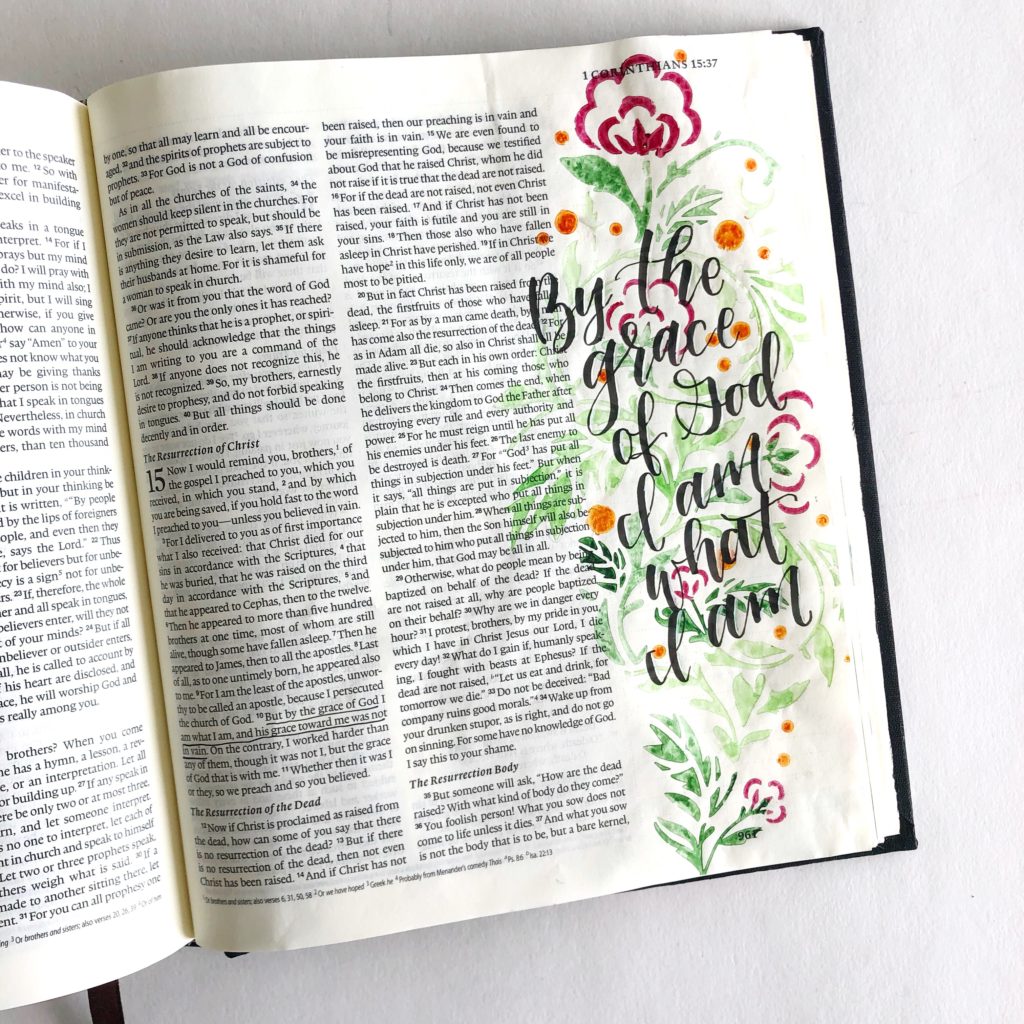 er to the speaker
o me. 12 So with
er for manifesta-
excel in building
eaks in a tongue
nterpret. 14 For if I
rays but my mind
do? I will pray with
ith my mind also; I
pirit, but I will sing
therwise, if you give
how can anyone in
say "Amen" to your
es not know what you
may be giving thanks
er person is not being
that I speak in tongues
Nevertheless, in church
e words with my mind
ers, than ten thousand
e children in your think-
but in your thinking be
it is written, "By people
d by the lips of foreigners
ople, and even then they
e, says the Lord." 22 Thus
t for believers but for unbe-
ecy is a sign5 not for unbe-
ers. 23 If, therefore, the whole
her and all speak in tongues,
elievers enter, will they not
t of your minds? 24 But if all
nbeliever or outsider enters,
all, he is called to account by
f his heart are disclosed, and
ace, he will worship God and
s really among you.
brothers? When you come
ne has a hymn, a lesson, a rev-
e, or an interpretation. Let all
or building up. 27 If any speak in
ere be only two or at most three,
rn, and let someone interpret.
s no one to interpret, let each of
nt in church and speak to himself
Let two or three prophets speak,
thers weigh what is said. 30 If a
made to another sitting there, let
ent. 31 For you can all prophesy one
3 Or brothers and sisters; also verses 20, 26, 39
1 CORINTHIANS 15:37
by one, so that all may learn and all be encour-
aged, 32 and the spirits of prophets are subject to
prophets. 33 For God is not a God of confusion
but of peace.
As in all the churches of the saints, 34 the
women should keep silent in the churches. For
they are not permitted to speak, but should be
in submission, as the Law also says. 35 If there
is anything they desire to learn, let them ask
their husbands at home. For it is shameful for
a woman to speak in church.
36 Or was it from you that the word of God
came? Or are you the only ones it has reached?
37 If anyone thinks that he is a prophet, or spiri-
tual, he should acknowledge that the things
I am writing to you are a command of the
Lord. 38 If anyone does not recognize this, he
is not recognized. 39 So, my brothers, earnestly
desire to prophesy, and do not forbid speaking
in tongues. 40 But all things should be done
decently and in order.
The Resurrection of Christ
15 Now I would remind you, brothers,1 of
the gospel I preached to you, which you
received, in which you stand, 2 and by which
you are being saved, if you hold fast to the word
I preached to you—unless you believed in vain.
3 For I delivered to you as of first importance
what I also received: that Christ died for our
sins in accordance with the Scriptures, 4 that
he was buried, that he was raised on the third
day in accordance with the Scriptures, 5 and
that he appeared to Cephas, then to the twelve.
6 Then he appeared to more than five hundred
brothers at one time, most of whom are still
alive, though some have fallen asleep. 7 Then he
appeared to James, then to all the apostles. 8 Last
of all, as to one untimely born, he appeared also
to me. 9 For I am the least of the apostles, unwor-
thy to be called an apostle, because I persecuted
the church of God. 10 But by the grace of God I
am what I am, and his grace toward me was not
in vain. On the contrary, I worked harder than
any of them, though it was not I, but the grace
of God that is with me. 11 Whether then it was I
or they, so we preach and so you believed.
The Resurrection of the Dead
12 Now if Christ is proclaimed as raised from
the dead, how can some of you say that there
is no resurrection of the dead? 13 But if there
is no resurrection of the dead, then not even
Christ has been raised. 14 And if Christ has not
been raised, then our preaching is in vain and
your faith is in vain. 15 We are even found to
be misrepresenting God, because we testified
about God that he raised Christ, whom he did
not raise if it is true that the dead are not raised.
16 For if the dead are not raised, not even Christ
has been raised. 17 And if Christ has not been
raised, your faith is futile and you are still in
your sins. 18 Then those also who have fallen
asleep in Christ have perished. 19 If in Christ we
have hope2 in this life only, we are of all people
most to be pitied.
20 But in fact Christ has been raised from the
dead, the firstfruits of those who have fallen
asleep. 21 For as by a man came death, by a man
has come also the resurrection of the dead. 22 For
as in Adam all die, so also in Christ shall all be
made alive. 23 But each in his own order: Christ
the firstfruits, then at his coming those who
belong to Christ. 24 Then comes the end, when
he delivers the kingdom to God the Father after
destroying every rule and every authority and
power. 25 For he must reign until he has put all
his enemies under his feet. 26 The last enemy to
be destroyed is death. 27 For "God3 has put all
things in subjection under his feet." But when
it says, "all things are put in subjection," it is
plain that he is excepted who put all things in
subjection under him. 28 When all things are sub-
jected to him, then the Son himself will also be
subjected to him who put all things in subjection
under him, that God may be all in all.
29 Otherwise, what do people mean by being
baptized on behalf of the dead? If the dead
are not raised at all, why are people baptized
on their behalf? 30 Why are we in danger every
hour? 31 I protest, brothers, by my pride in you,
which I have in Christ Jesus our Lord, I die
every day! 32 What do I gain if, humanly speak-
ing, I fought with beasts at Ephesus? If the
dead are not raised, "Let us eat and drink, for
tomorrow we die." 33 Do not be deceived: "Bad
company ruins good morals."4 34 Wake up from
your drunken stupor, as is right, and do not go
on sinning. For some have no knowledge of God.
I say this to your shame.
The Resurrection Body
35 But someone will ask, "How are the dead
raised? With what kind of body do they come?"
36 You foolish person! What you sow does not
come to life unless it dies. 37 And what you sow
is not the body that is to be, but a bare kernel,
1 Or brothers and sisters; also verses 6, 31, 50, 58 2 Or we have hoped 3 Greek he 4 Probably from Menander's comedy Thais a Ps. 8:6 b Isa. 22:13
961
By the
grace
of God
I am
what
I am